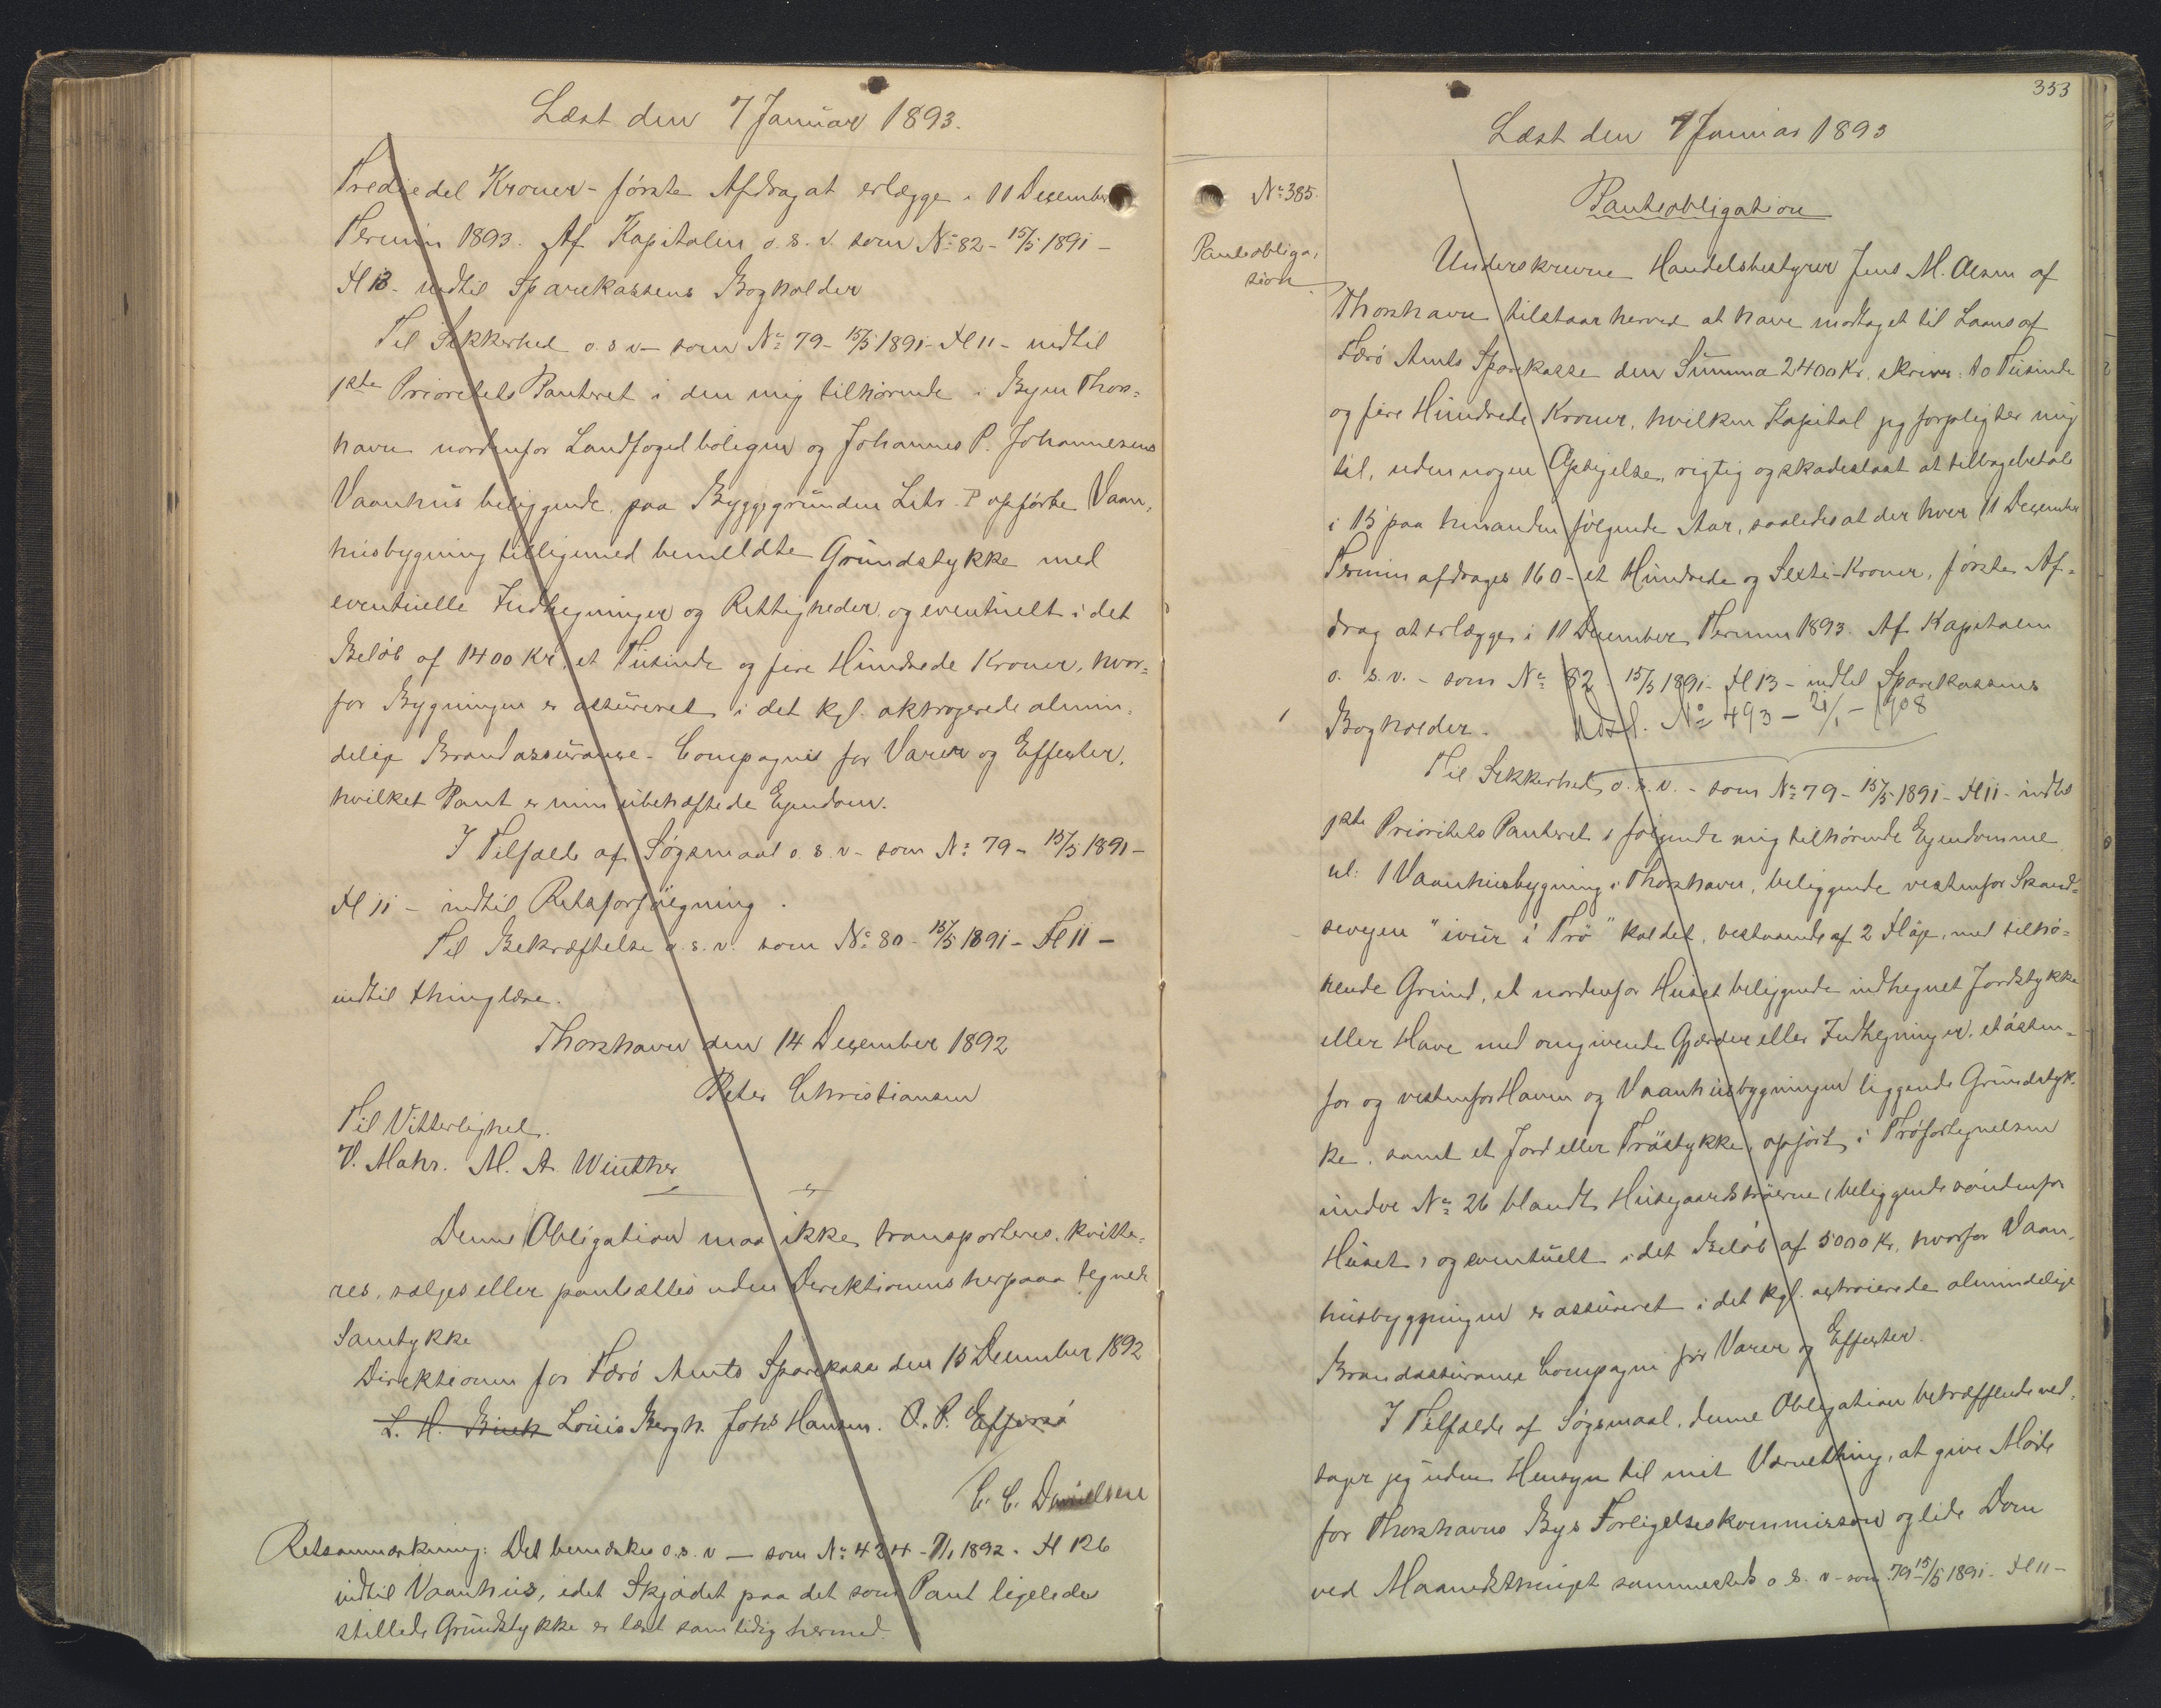 Læst den 7 Januar 1893.
Trediedel Kroner - første Afdrag at erlægge i 11 Decembers
Termin 1893. Af Kapitalen o. s. v. som No 82 - 15/5 1891 -
H 13 - indtil Sparekassens Bogholder
Til Sikkerhed o. s v - som No 79 - 15/5 1891 - H 11 - indtil
1ste Prioritets Panteret i den mig tilhørende i Byen Thors=
havn nordenfor Landfogedboligen og Johannes P. Johannesens
Vaanhus beliggende, paa Byggegrunden Litr. P opførte Vaan,
husbygning tilligemed bemeldte Grundstykke med
eventuelle Indhegninger og Rettigheder, og eventuelt i det
Beløb af 1400 Kr, et Tusinde og fire Hundrede Kroner, hvor=
for Bygningen er assureret i det kgl. oktrogerede almin,
delige Brandassurance-Compagni for Varer og Effecter,
hvilket Pant er min ubehæftede Ejendom.
I Tilfælde af Søgsmaal o. s. v - som No 79 - 15/5 1891 -
H 11 - indtil Retsforfølgning.
Til Bekræftelse o. s. v. som No 80 - 15/5 1891 - H 11 -
indtil thinglæse.
Thorshavn den 14 December 1892
Peter Christiansen
Til Vitterlighed.
V. Mohr. M. A. Winther
Denne Obligation maa ikke transporteres, kvitte,
res, sælges eller pantsættes uden Direktionens herpaaa tegnede
Samtykke
Direktionen for Færø Amts Sparekasse den 15 December 1892
L. H. Louis Bergh. Johs Hansen. O. P. Effersø
C. C. Danielsen
Retsanmærkning: Det bemærkes o. s. v - som No 424 - 7/1 1892 - H 126
indtil Vaanhus, idet Skjødet paa det som Pant ligeledes
stillede Grundstykke er læst samtidig hermed.
353
Læst den 7 Januar 1893
No 385.
Panteobliga,
tion
Panteobligation
Underskrevne Handelsbestyrer Jens M. Olsen af
Thorshavn tilstaar herved at have modtaget til Laans af
Færø Amts Sparekasse den Summa 2400 Kr. skriver: to Tusinde
og fire Hundrede Kroner, hvilken Kapital jeg forpligter mig
til, uden nogen Opsigelse, rigtig og skadeslaast at tilbagebetale
i 15 paa hinanden følgende Aar, saaledes at der hver 11 December
Termin afdrages 160 - et Hundrede og Sexti - Kroner, første Af=
drag at erlægges i 11 December Termin 1893. Af Kapitalen
o. s. v. - som No 82 - 15/5 1891 - H 13 - indtil Sparekassens
Bogholder. Udsl. No 493 - 21/1 - 1908
Til Sikkerhed, o. s. v. - som No 79 - 15/5 1891 - H 11 - indtil
1ste Prioritets Panteret i følgende mig tilhørende Ejendomme
nl: 1 Vaanhusbygning i Thorshavn, beliggende vestenfor Skand=
sevejen "ivur i Trø" kaldet, bestaaende af 2 Høje, med tilhø=
rende Grund, et nordenfor Huset beliggende indhegnet Jordstykke
eller Have med omgivende Gjærder eller Indhegninger, et østen=
for og vestenfor Haven og Vaanhusbygningen liggende Grundstyk=
ke, samt et Jord eller Trøstykke, opført i Trøfortegnelsen
under No 26 blandt Husgaardstrøerne (beliggende søndenfor
Huset) og eventuelt i det Beløb af 5000 Kr, hvorfor Vaan,
husbygningen er assureret i det kgl. octroierede almindelige
Brandassurance Compagni for Varer og Effecter.
I Tilfælde af Søgsmaal, denne Obligation betræffende ved,
tager jeg uden Hensyn til mit Værnething, at give Møde
for Thorshavns Bys Forligelseskommission og lide Dom
ved Maanedsthinget sammesteds o. s. v - som 79 - 15/5 1891 - H 11 -